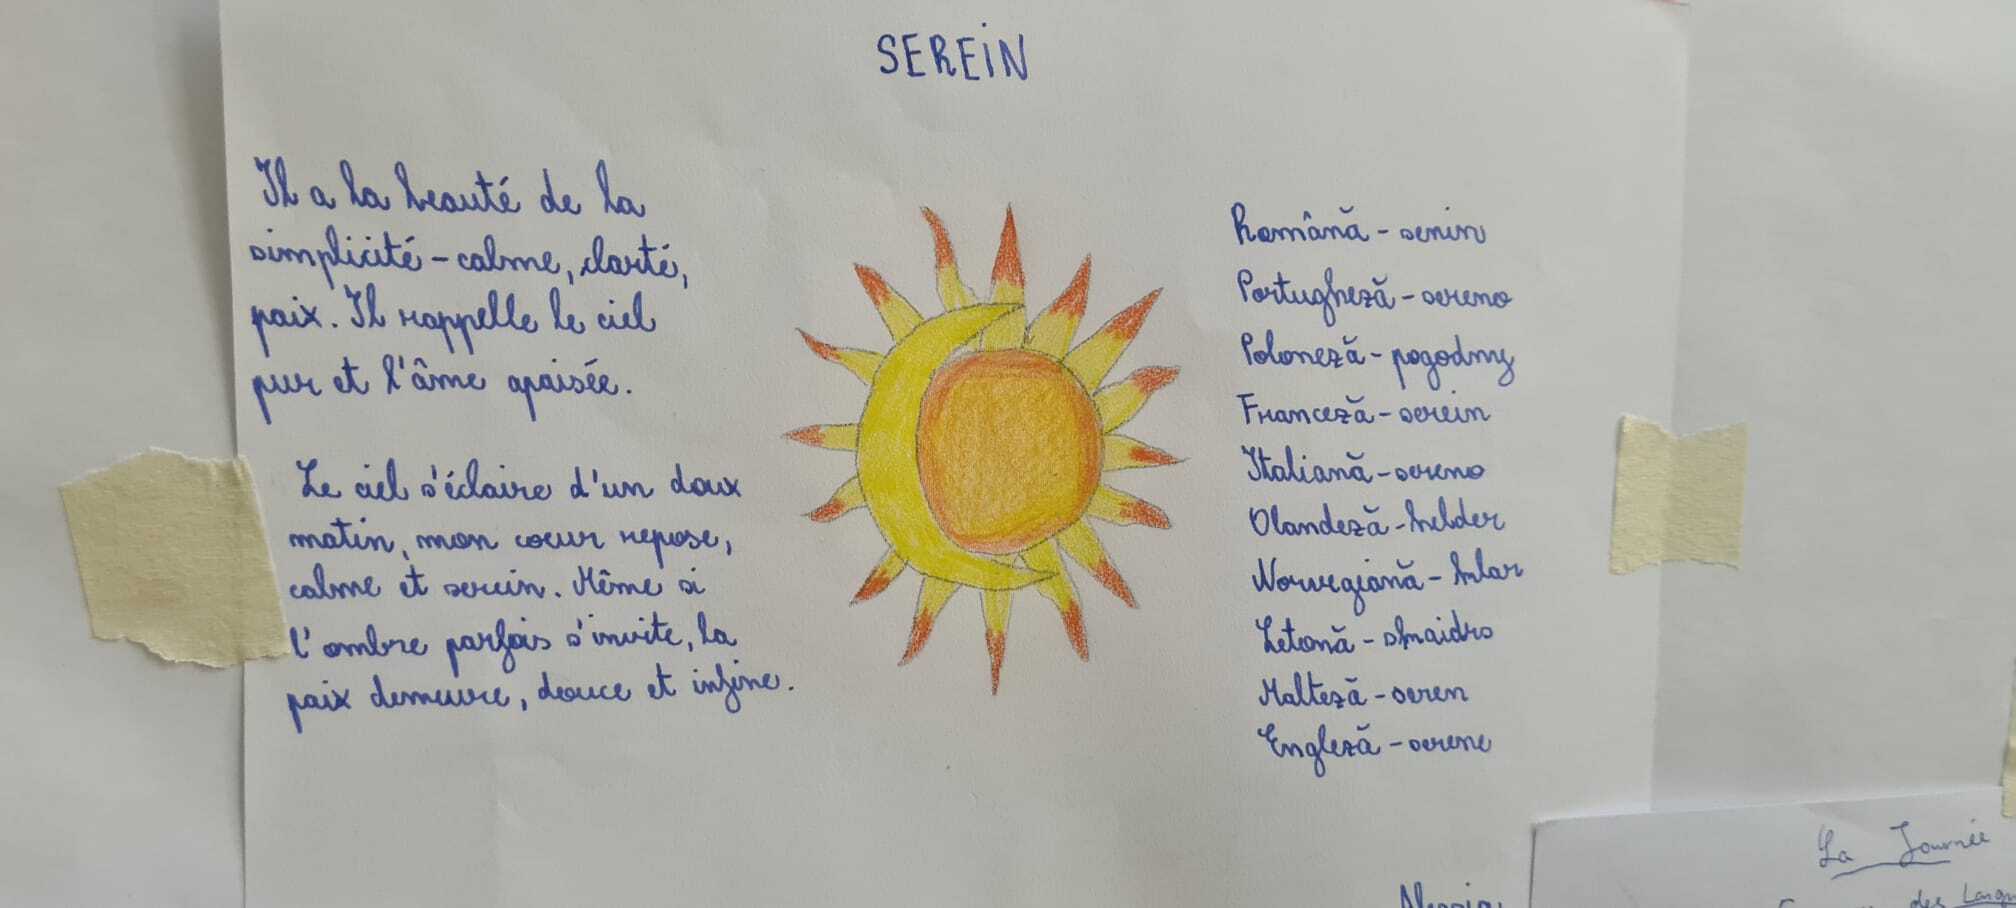 SEREIN
Il a la beauté de la
simplicité - calme, clarté,
paix. Il rappelle le ciel
pur et l'âme apaisée.
Le ciel s'éclaire d'un doux
matin, mon coeur repose,
calme et serein. Même si
l'ombre parfois s'invite, la
paix demeure, douce et infine.
Română - senin
Portugheză - sereno
Poloneză - pogodny
Franceză - serein
Italiană - sereno
Olandeză - helder
Norvegiană - klar
Letonă - skaidrs
Malteză - seren
Engleză - serene
La Journée
des